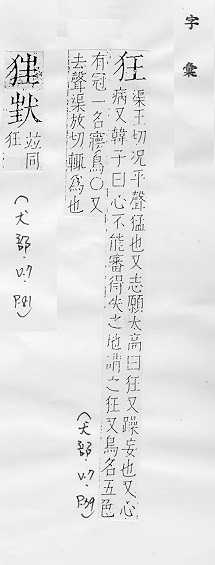 字彙
狂
渠王切況平聲猛也又志願太高曰狂又躁妄也又心
病又韓子曰心不能審得失之地謂之狂又鳥名五色
有冠一名㝱鳥○又
去聲渠放切輒為也
(犬部.V.7 P.39)
竝同
狂
(犬部.V.7